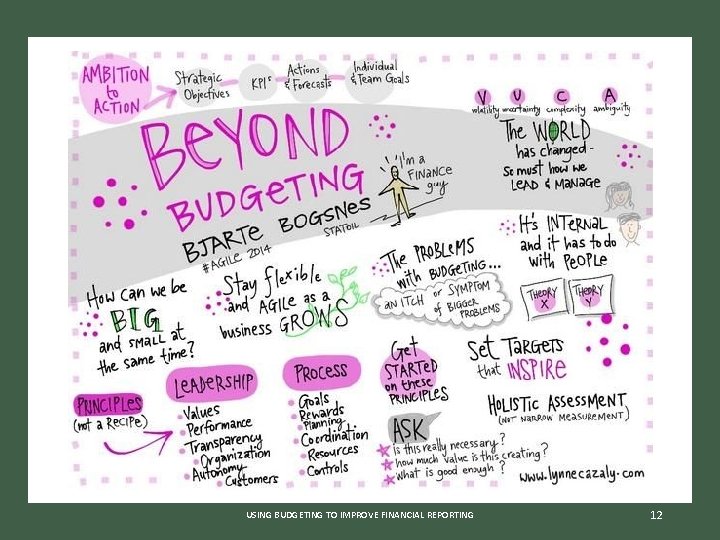 AMBITION
to
ACTION
Strategic
Objectives
KPIs
Actions
& Forecasts
Individual
& Team Goals
V U C A
volatility uncertainty complexity ambiguity
The WORLD
has changed -
so must how we
LEAD & MANAGE
BEYOND
BUDGETING
BJARTE BOGSNES
STATOIL
#AGILE 2014
I'm a
FINANCE
guy
It's INTERNAL
and it has to do
with PEOPLE
THEORY
X
THEORY
Y
How can we be
BIG
and small at
the same time?
Stay flexible
and AGILE as a
business GROWS
The PROBLEMS
with BUDGETING...
an ITCH or SYMPTOM
of BIGGER
PROBLEMS
PRINCIPLES
(not a RECIPE)
LEADERSHIP
Values
Performance
Transparency
Organization
Autonomy
Customers
PROCESS
Goals
Rewards
Planning
Coordination
Resources
Controls
Get
STARTED
on these
PRINCIPLES
ASK
Is this really necessary?
how much value is this creating?
what is good enough?
Set TARGETS
that INSPIRE
HOLISTIC ASSESSMENT
(NOT NARROW MEASUREMENT)
www.lynnecazaly.com
USING BUDGETING TO IMPROVE FINANCIAL REPORTING
12